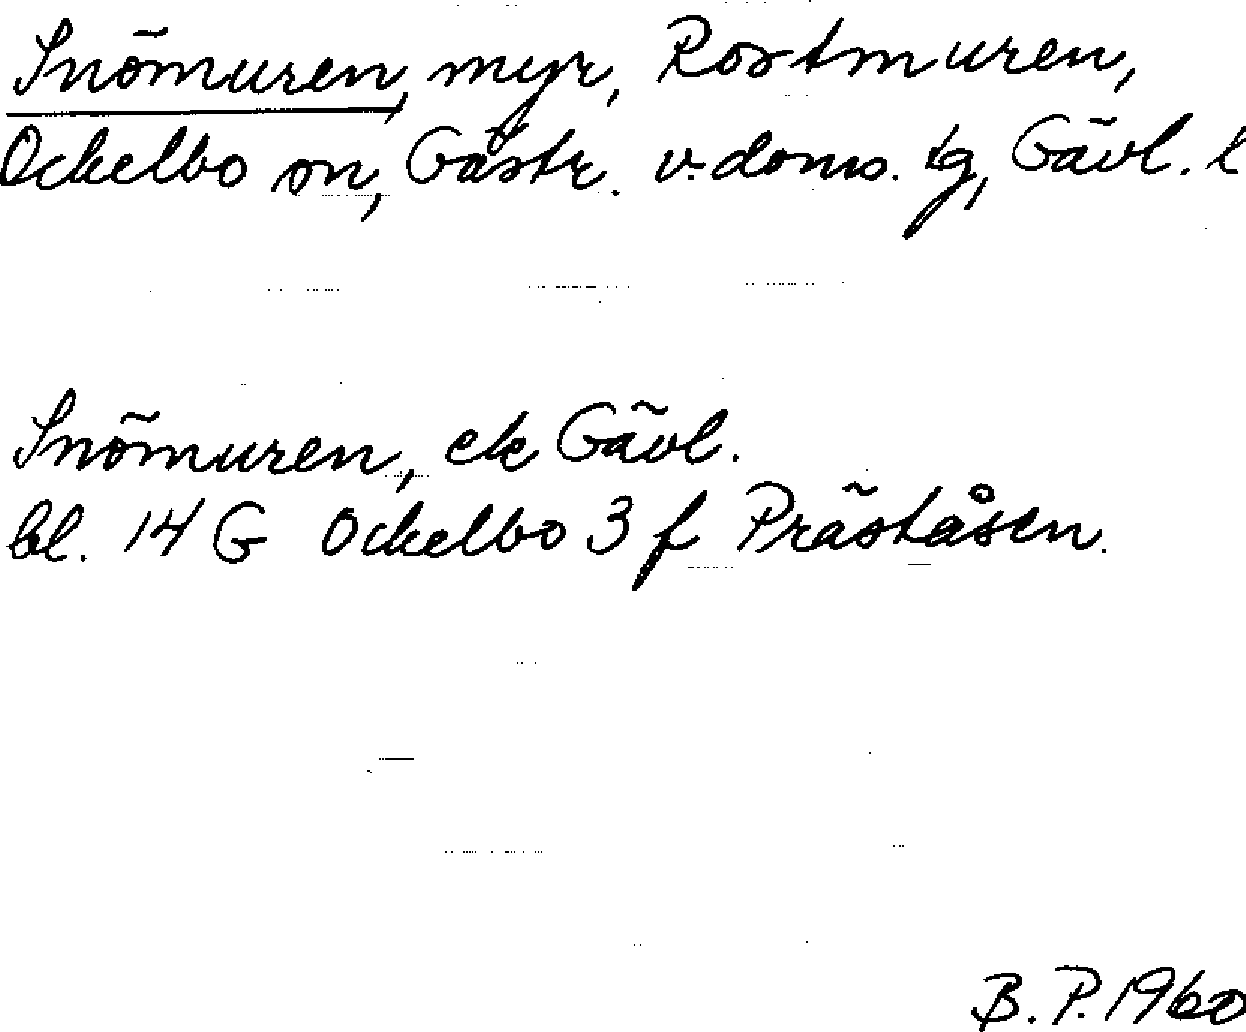 Snömuren, myr, Rostmuren,
Ockelbo sn, Gästr. v. doms. tg, Gävl. l
Snömuren, ek Gävl.
bl. 14 G Ockelbo 3 f Präståsen.
B. P. 1960